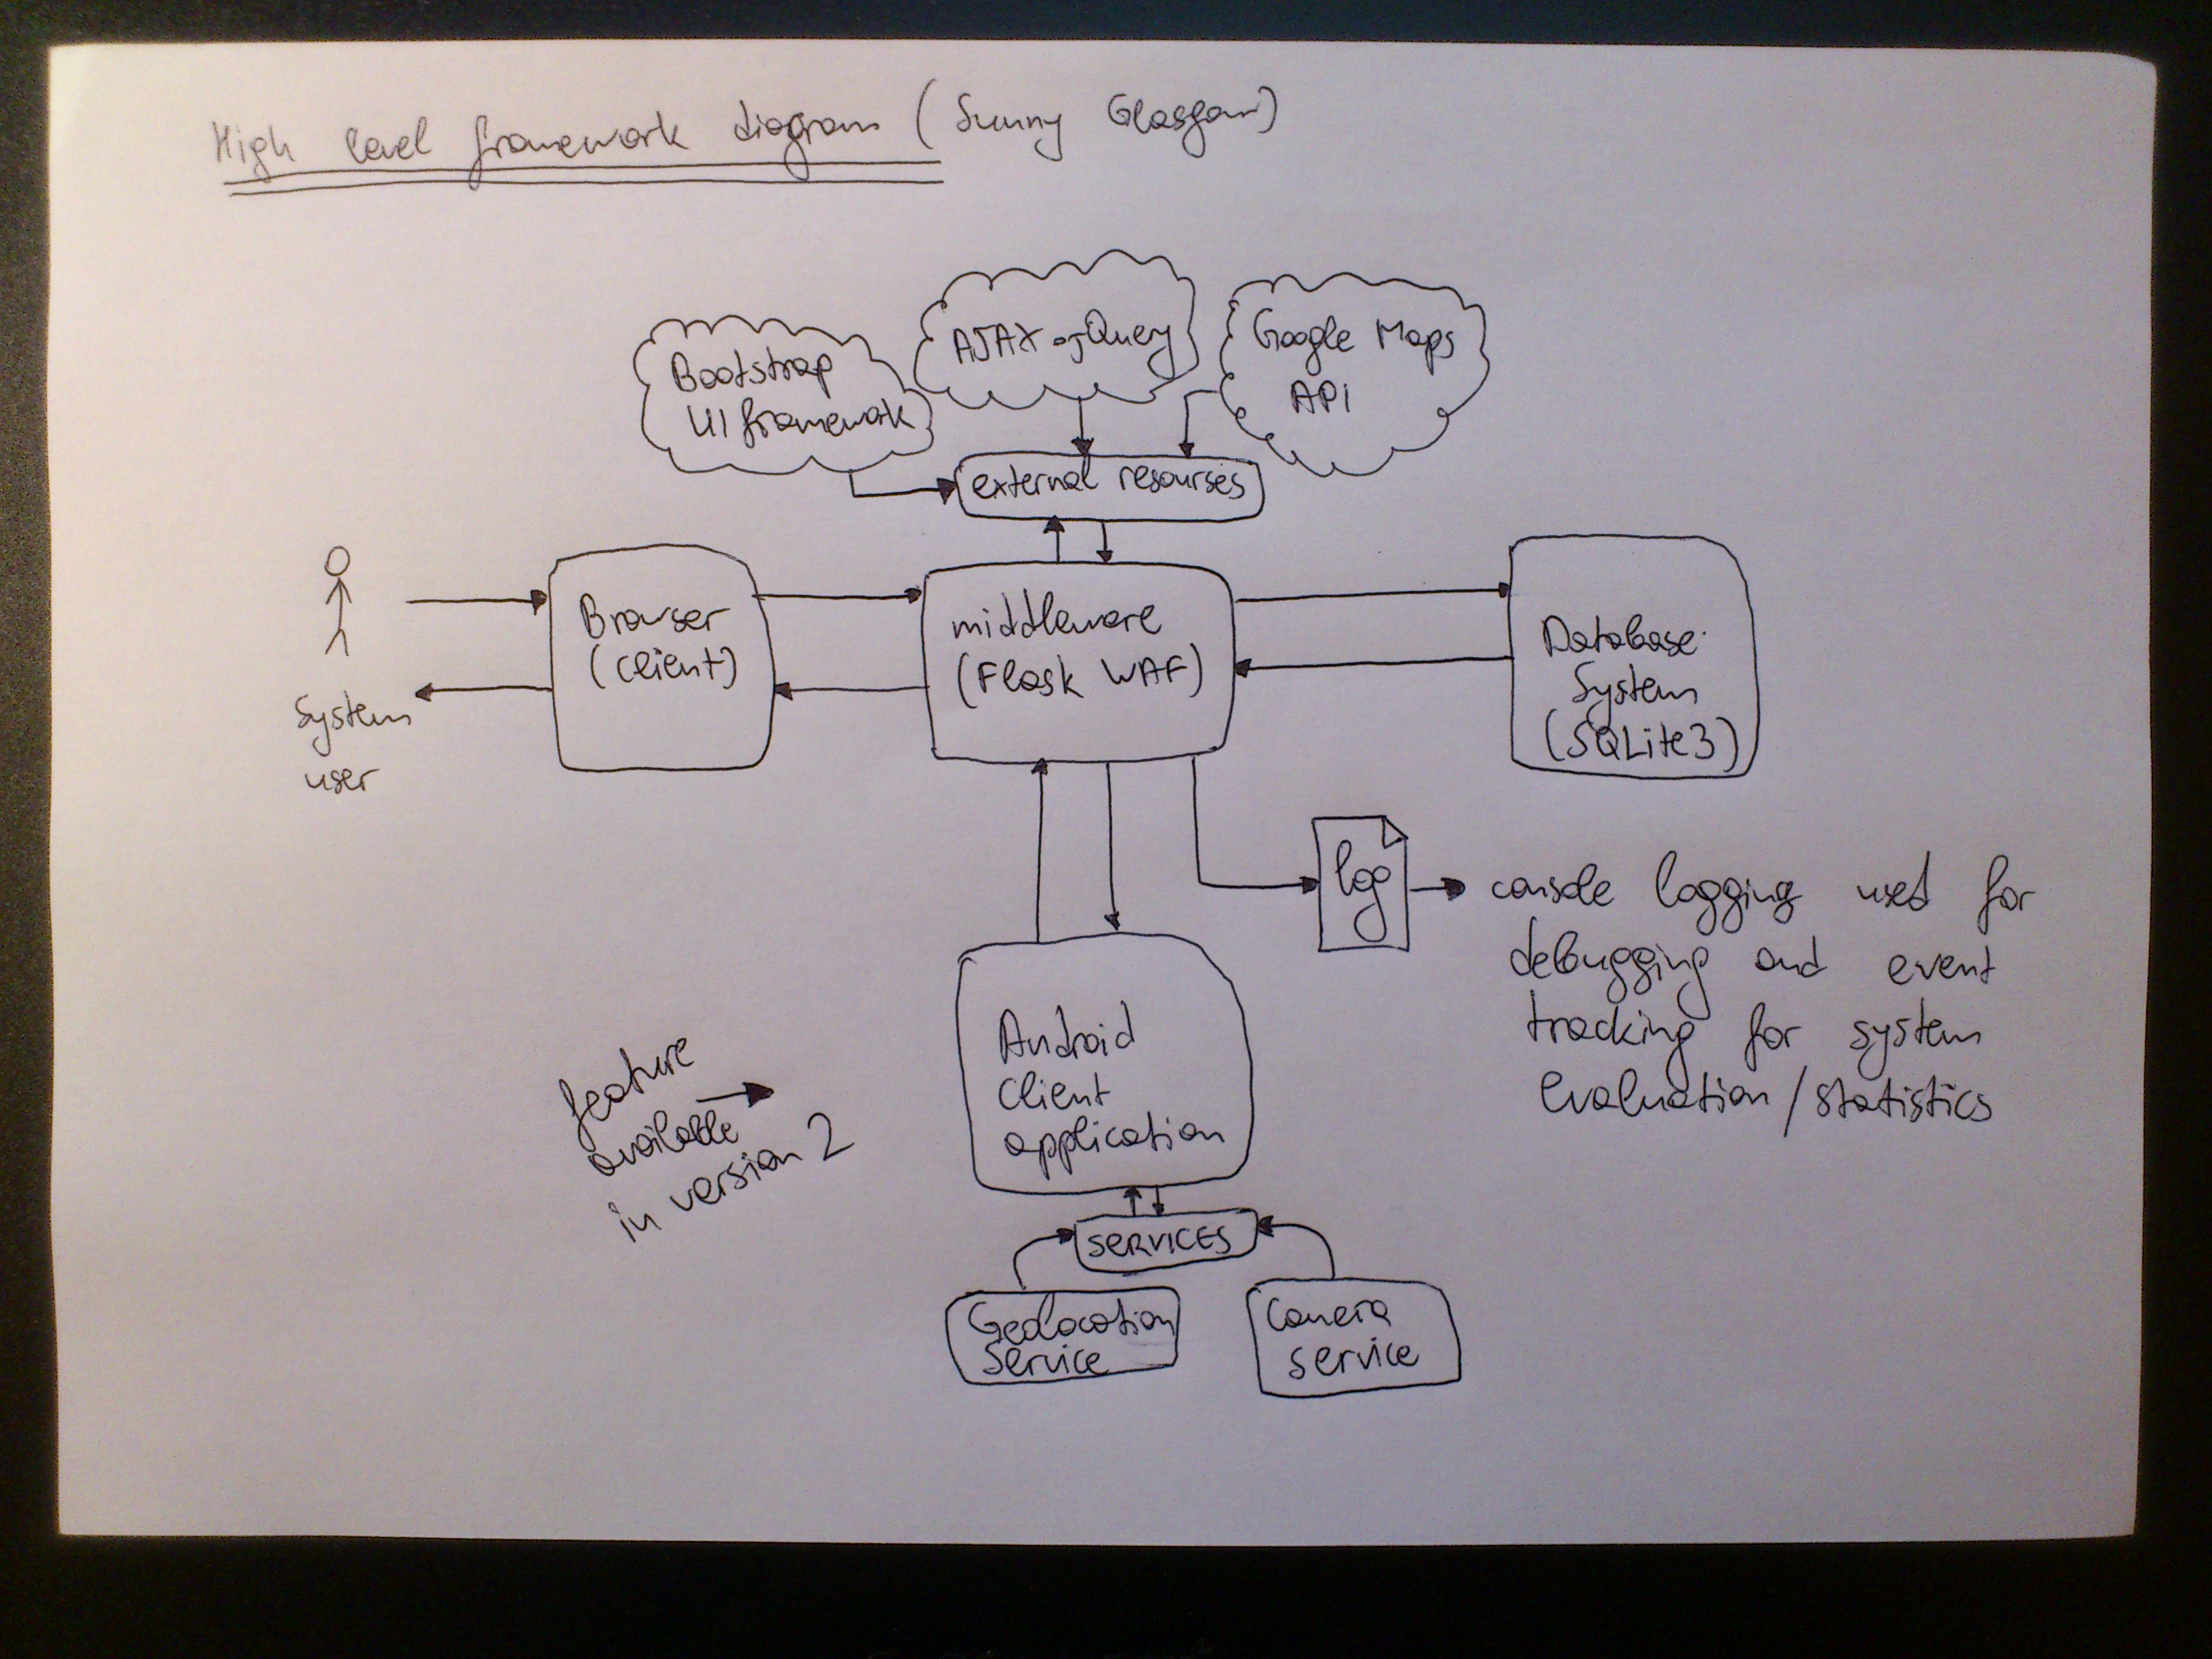 High level framework diagram (Sunny Glasgow)
Bootstrap
UI framework
AJAX & jQuery
Google Maps
API
external resourses
System
user
Browser
(client)
middlewere
(Flask WAF)
Database
System
(SQLite3)
log
console logging used for
debugging and event
tracking for system
evaluation / statistics
feature
available
in version 2
Android
client
application
SERVICES
Geolocation
Service
Camera
service